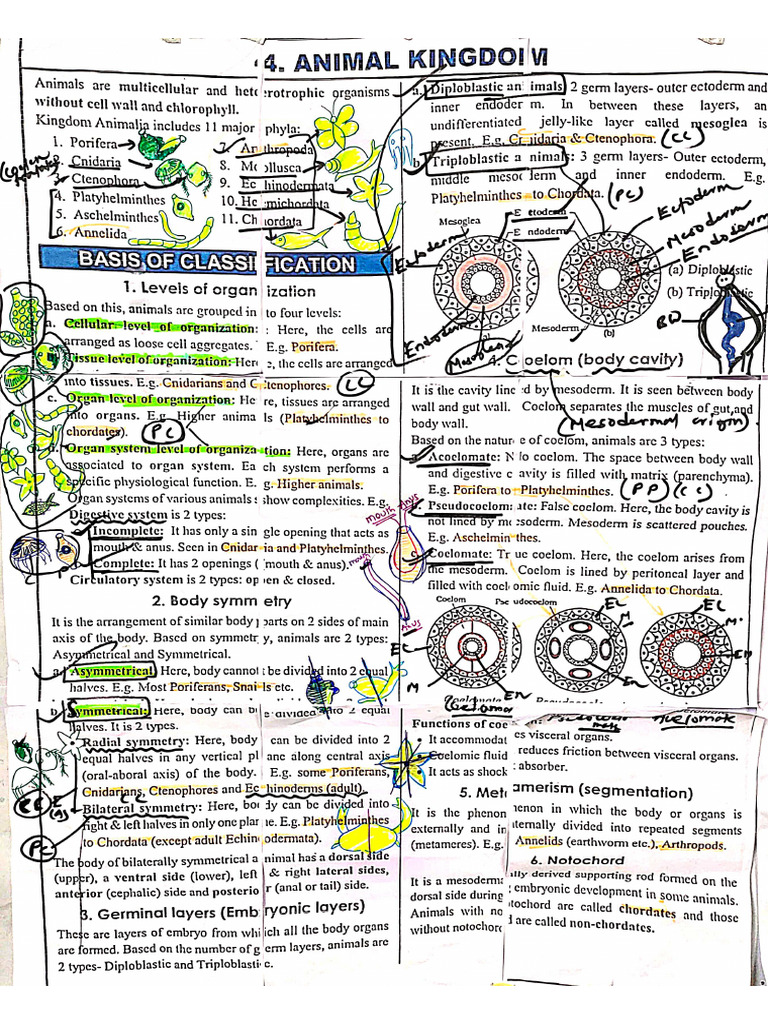 4. ANIMAL KINGDOM
Animals are multicellular and heterotrophic organisms
without cell wall and chlorophyll.
Kingdom Animalia includes 11 major phyla:
1. Porifera
2. Cnidaria
3. Ctenophora
4. Platyhelminthes
5. Aschelminthes
6. Annelida
7. Arthropoda
8. Mollusca
9. Echinodermata
10. Hemichordata
11. Chordata
BASIS OF CLASSIFICATION
1. Levels of organization
Based on this, animals are grouped into four levels:
a. Cellular level of organization: Here, the cells are
arranged as loose cell aggregates. E.g. Porifera.
Tissue level of organization: Here, the cells are arranged
into tissues. E.g. Cnidarians and Ctenophores.
c. Organ level of organization: Here, tissues are arranged
into organs. E.g. Higher animals (Platyhelminthes to
chordates).
PC
d. Organ system level of organization: Here, organs are
associated to organ system. Each system performs a
specific physiological function. E.g. Higher animals.
Organ systems of various animals show complexities. E.g.
Digestive system is 2 types:
Incomplete: It has only a single opening that acts as
mouth & anus. Seen in Cnidaria and Platyhelminthes.
Complete: It has 2 openings (mouth & anus).
Circulatory system is 2 types: open & closed.
2. Body symmetry
It is the arrangement of similar body parts on 2 sides of main
axis of the body. Based on symmetry, animals are 2 types:
Asymmetrical and Symmetrical.
a. Asymmetrical: Here, body cannot be divided into 2 equal
halves. E.g. Most Poriferans, Snails etc.
b. Symmetrical: Here, body can be divided into 2 equal
halves. It is 2 types.
Radial symmetry: Here, body can be divided into 2
equal halves in any vertical plane along central axis
(oral-aboral axis) of the body. E.g. some Poriferans,
Cnidarians, Ctenophores and Echinoderms (adult).
Bilateral symmetry: Here, body can be divided into
right & left halves in only one plane. E.g. Platyhelminthes
to Chordata (except adult Echinodermata).
PC
The body of bilaterally symmetrical animal has a dorsal side
(upper), a ventral side (lower), left & right lateral sides,
anterior (cephalic) side and posterior (anal or tail) side.
3. Germinal layers (Embryonic layers)
These are layers of embryo from which all the body organs
are formed. Based on the number of germ layers, animals are
2 types- Diploblastic and Triploblastic.
a. Diploblastic animals: 2 germ layers- outer ectoderm and
inner endoderm. In between these layers, an
undifferentiated jelly-like layer called mesoglea is
present. E.g. Cnidaria & Ctenophora.
(CC)
b. Triploblastic animals: 3 germ layers- Outer ectoderm,
middle mesoderm and inner endoderm. E.g.
Platyhelminthes to Chordata.
(PC)
Mesoglea
Ectoderm
Endoderm
Mesoderm
(b)
Ectoderm
Endoderm
Mesoglea
Ectoderm
Mesoderm
Endoderm
(a) Diploblastic
(b) Triploblastic
4. Coelom (body cavity)
It is the cavity lined by mesoderm. It is seen between body
wall and gut wall. Coelom separates the muscles of gut and
body wall.
(Mesodermal origin)
Based on the nature of coelom, animals are 3 types:
Acoelomate: No coelom. The space between body wall
and digestive cavity is filled with matrix (parenchyma).
E.g. Porifera to Platyhelminthes.
(PP)
(CC)
Pseudocoelomate: False coelom. Here, the body cavity is
not lined by mesoderm. Mesoderm is scattered pouches.
E.g. Aschelminthes.
Coelomate: True coelom. Here, the coelom arises from
the mesoderm. Coelom is lined by peritoneal layer and
filled with coelomic fluid. E.g. Annelida to Chordata.
mouth
anus
Coelom
Pseudocoelom
EC
M
EN
EL
M
En
EL
M
Functions of coelom:
It accommodates visceral organs.
Coelomic fluid reduces friction between visceral organs.
It acts as shock absorber.
5. Metamerism (segmentation)
It is the phenomenon in which the body or organs is
externally and internally divided into repeated segments
(metameres). E.g. Annelids (earthworm etc.), Arthropods.
6. Notochord
It is a mesodermally derived supporting rod formed on the
dorsal side during embryonic development in some animals.
Animals with notochord are called chordates and those
without notochord are called non-chordates.